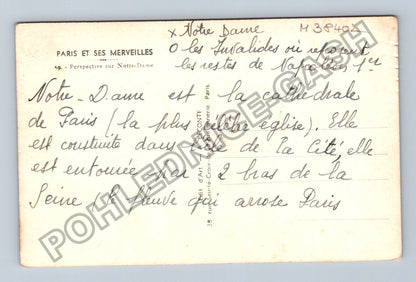 x Notre Dame M 38402
O les Invalides où reposent
les restes de Napoléon 1er
PARIS ET SES MERVEILLES
Perspective sur Notre-Dame
Notre-Dame est la cathédrale
de Paris (la plus célèbre église). Elle
est construite dans l'île de la Cité, elle
est entourée par 2 bras de la
Seine le fleuve qui arrose Paris
POHLEDNICE-CASH